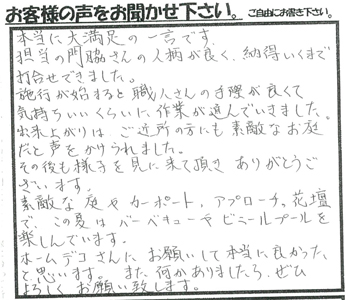 お客様の声をお聞かせ下さい。ご自由にお書き下さい。
本当に大満足の一言です。
担当の門脇さんの人柄が良く、納得いくまで
打合せできました。
施行が始まると職人さんの手際が良くて
気持ちいいくらいに作業が進んでいきました。
出来上がりは ご近所の方にも素敵なお庭
だと声をかけられました。
その後も様子を見に来て頂き ありがとうご
ざいます。
素敵な庭やカーポート、アプローチ、花壇
で、この夏はバーベキューやビニールプールを
楽しんでいます。
ホームデコさんに お願いして本当に良かった
と思います。 また、何かありましたら、ぜひ
よろしくお願い致します。